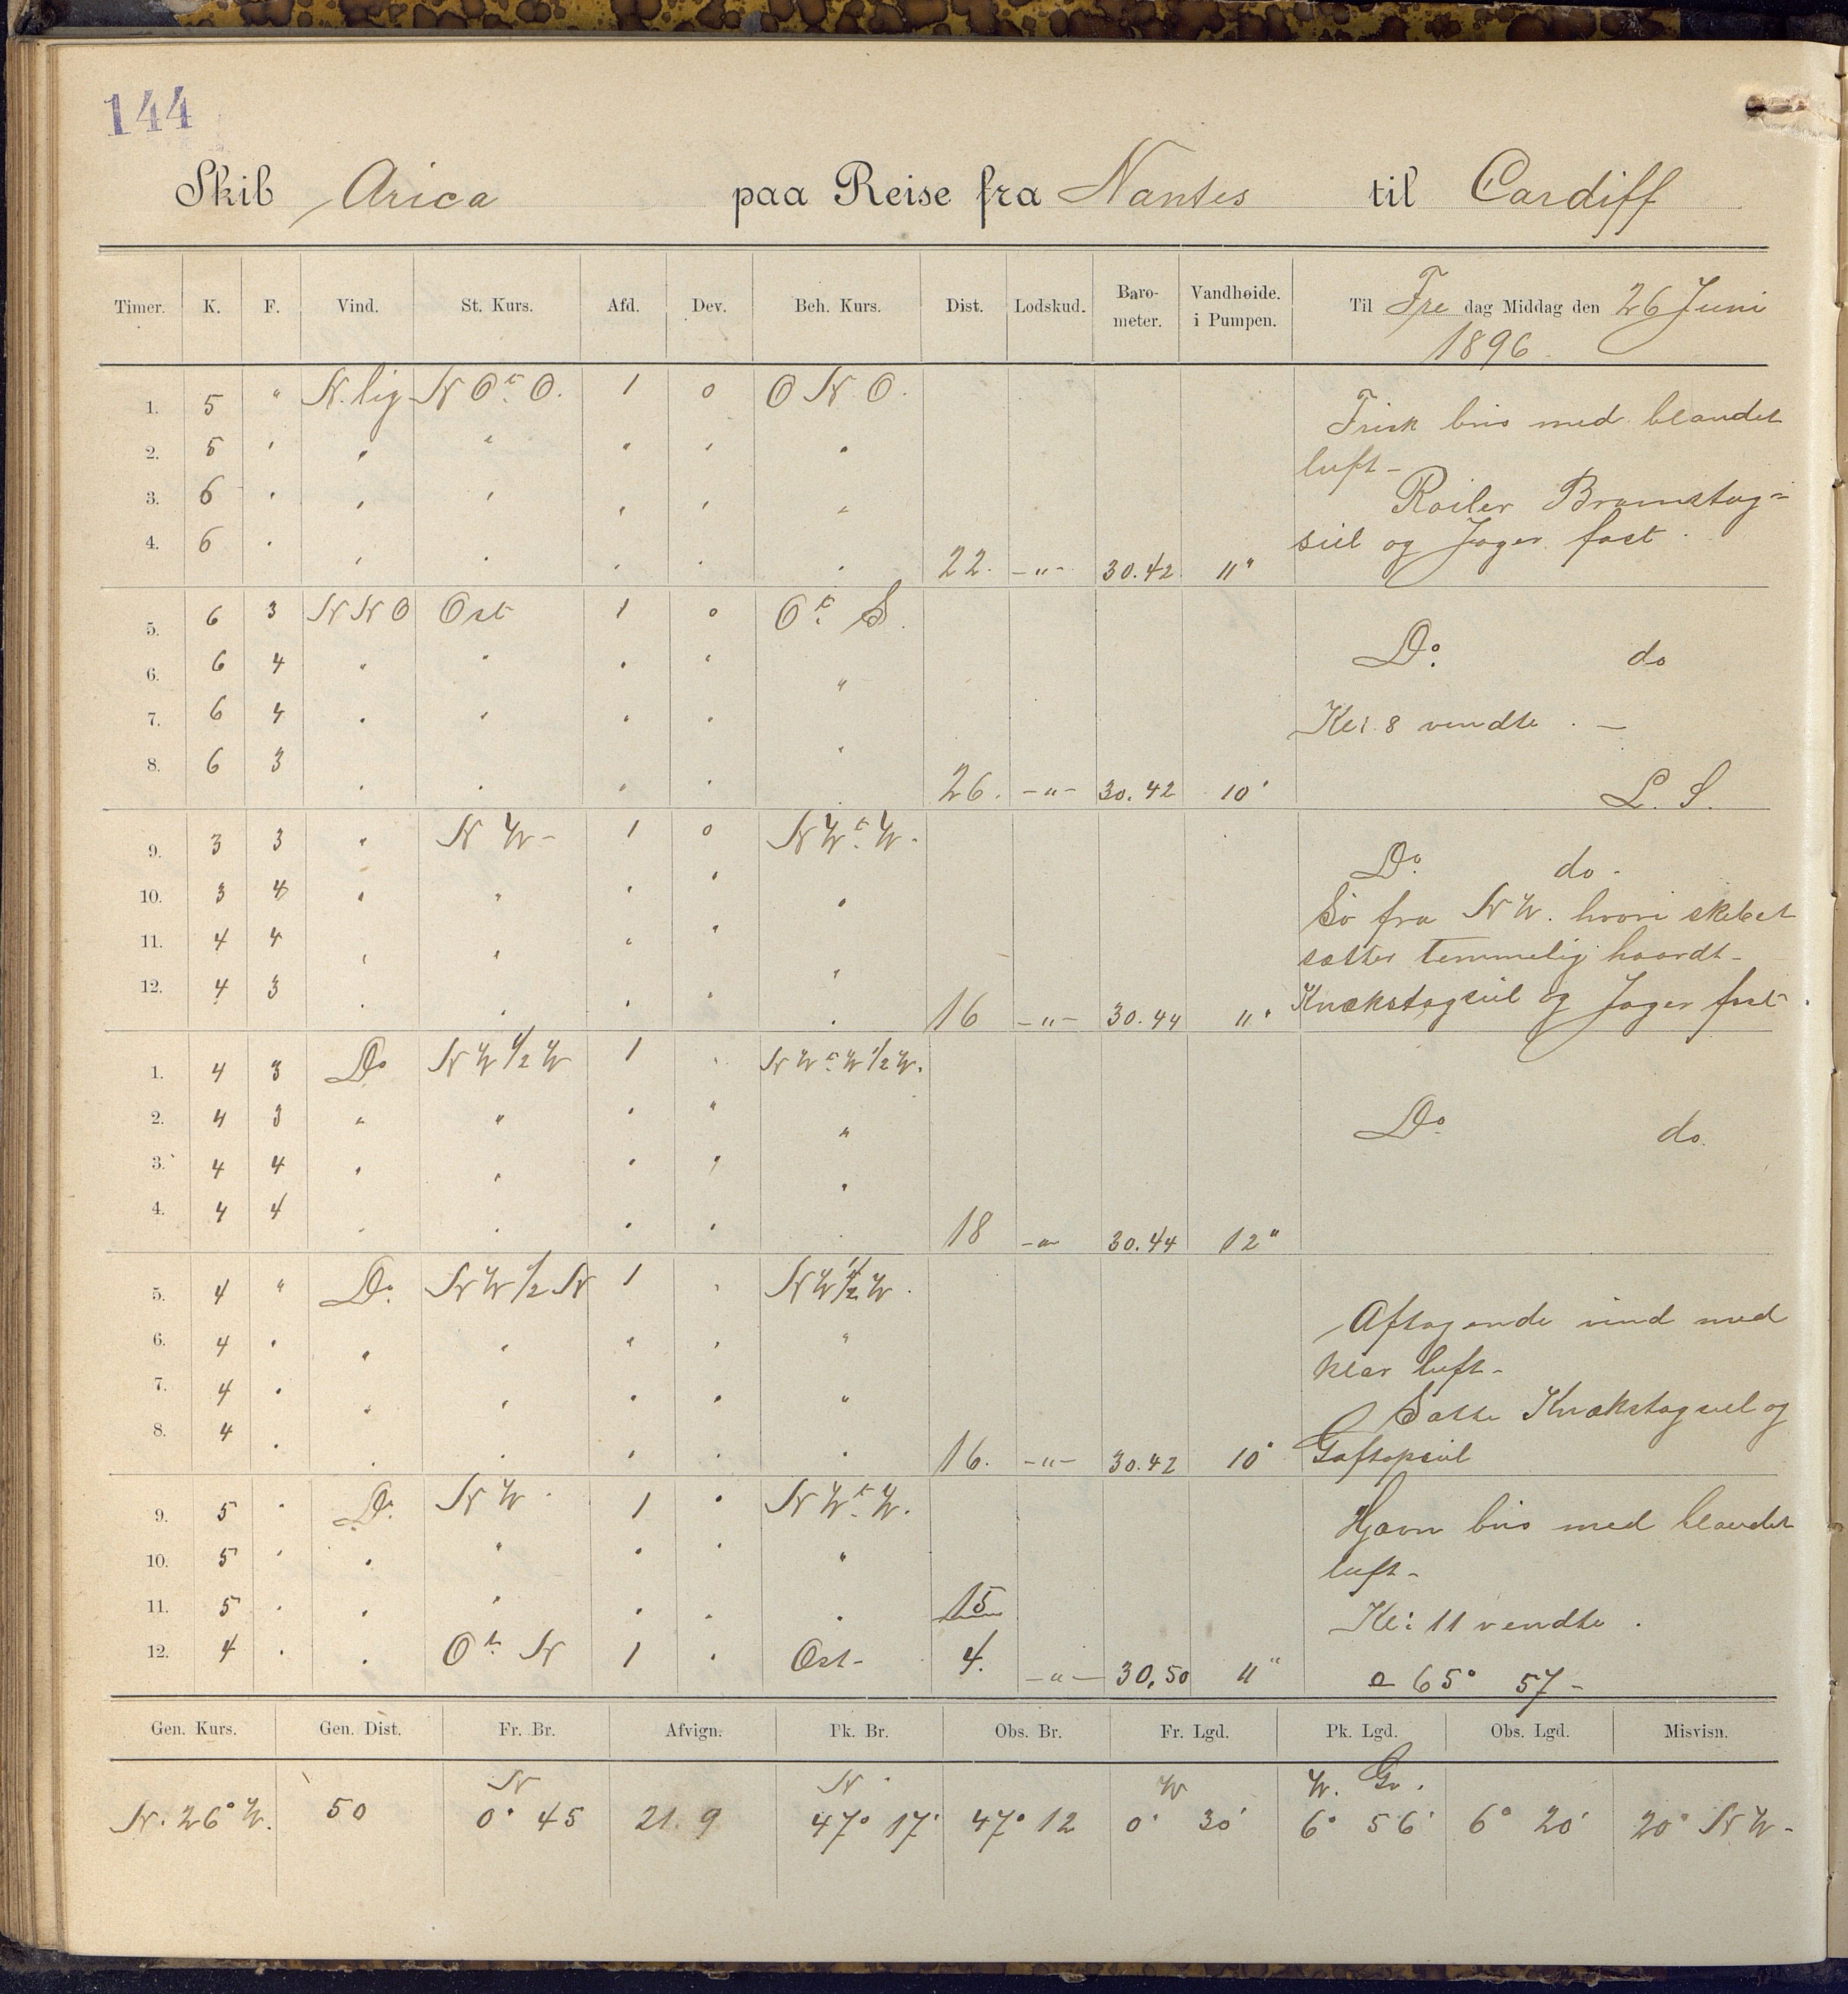 144
Skib Arica paa Reise fra Nantes til Cardiff
Timer. K. F. Vind. St. Kurs. Afd. Dev. Beh. Kurs. Dist. Lodskud. Baro-meter. Vandhøide. i Pumpen. Til Fredag Middag den 26 Juni 1896
1. 5 " N.lig N O t. O. 1 0 O N O. Frisk bris med blandet
2. 5 " " " " " " luft-
3. 6 " " " " " " Roiler Bramstag=
4. 6 " " " " " " 22. -"- 30.42 11" seil og Jager fast.
5. 6 3 N N O Ost 1 0 O t. S.
6. 6 4 " " " " " Do. do
7. 6 4 " " " " " Kl: 8 vendte. -
8. 6 3 " " " " " 26. -"- 30.42 10" L. S.
9. 3 3 " N W- 1 0 N W t. W. Do. do-
10. 3 4 " " " " " Sø fra N W. hvori skibet
11. 4 4 " " " " " sætter temmelig haardt-
12. 4 3 " " " " " 16 -"- 30.44 11" Knækstagseil og Jager fast.
1. 4 3 Do N W 1/2 W 1 " N W t. W 1/2 W.
2. 4 3 " " " " " Do. do.
3. 4 4 " " " " "
4. 4 4 " " " " " 18 -"- 30.44 12"
5. 4 " Do. N W 1/2 N 1 " N W 1/2 W. Aftagende vind med
6. 4 " " " " " " klar luft-
7. 4 " " " " " " Satte Knækstagseil og
8. 4 " " " " " " 16. -"- 30.42 10" Gaftopseil
9. 5 " Do. N W. 1 " N W t. W. Hjævn bris med blandet
10. 5 " " " " " " luft-
11. 5 " " " " " " 15 Kl: 11 vendte.
12. 4 " " O t. N 1 " Ost- 4. -"- 30,50 11" 65° 57-
Gen. Kurs. Gen. Dist. Fr. Br. Afvign. Pk. Br. Obs. Br. Fr. Lgd. Pk. Lgd. Obs. Lgd. Misvisn.
N N. W W. Gr.
N. 26° W. 50 0° 45 21.9 47° 17' 47° 12 0° 30' 6° 56' 6° 20' 20° N W-